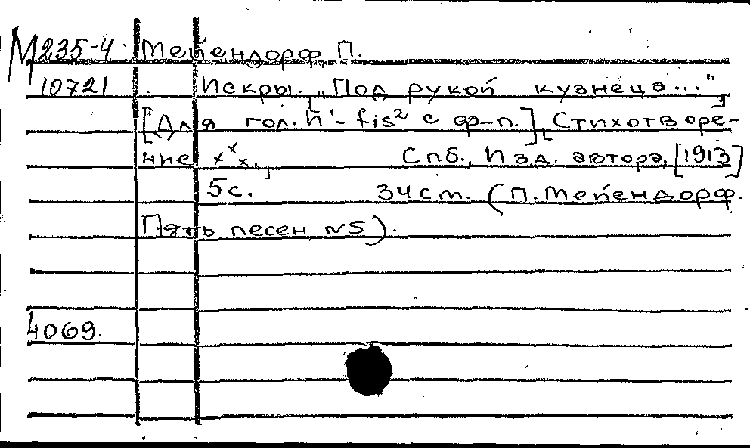 М235-4 Мейендорф, П.
10721 Искры. „Под рукой кузнеца..."
[Для гол. h'-fis² с ф-п.] [Стихотворе-
ние ххх.] Спб., Изд. автора, [1913]
5с. 34см. (П. Мейендорф.
Пять песен №5).
4069.